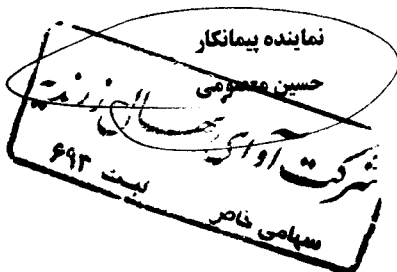 نماینده پیمانکار
حسین معصومی
شرکت آوای زرند
ثبت ۶۹۳
سهامی خاص